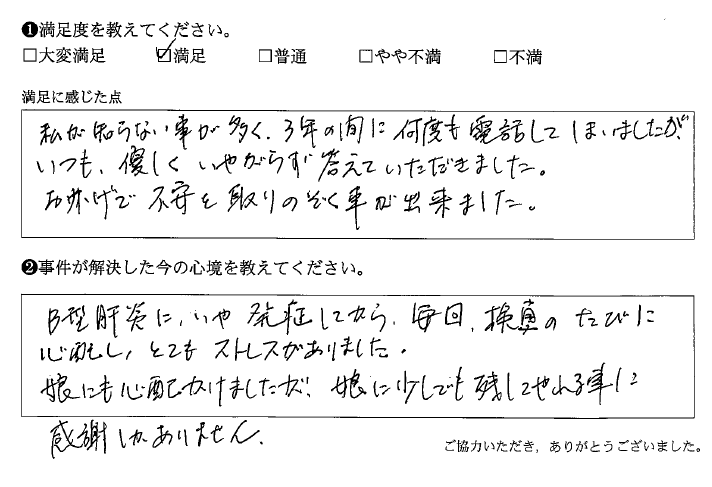 ❶満足度を教えてください。
□大変満足 ☑満足 □普通 □やや不満 □不満
満足に感じた点
私が知らない事が多く、3年の間に何度も電話してしまいましたが、
いつも、優しくいやがらず答えていただきました。
お掛げで不安を取りのぞく事が出来ました。
❷事件が解決した今の心境を教えてください。
B型肝炎に、いや発症してから、毎回、検査のたびに
心配し、とてもストレスがありました。
娘にも心配かけましたが、娘に少しでも残してやれる事に
感謝しかありません。
ご協力いただき、ありがとうございました。